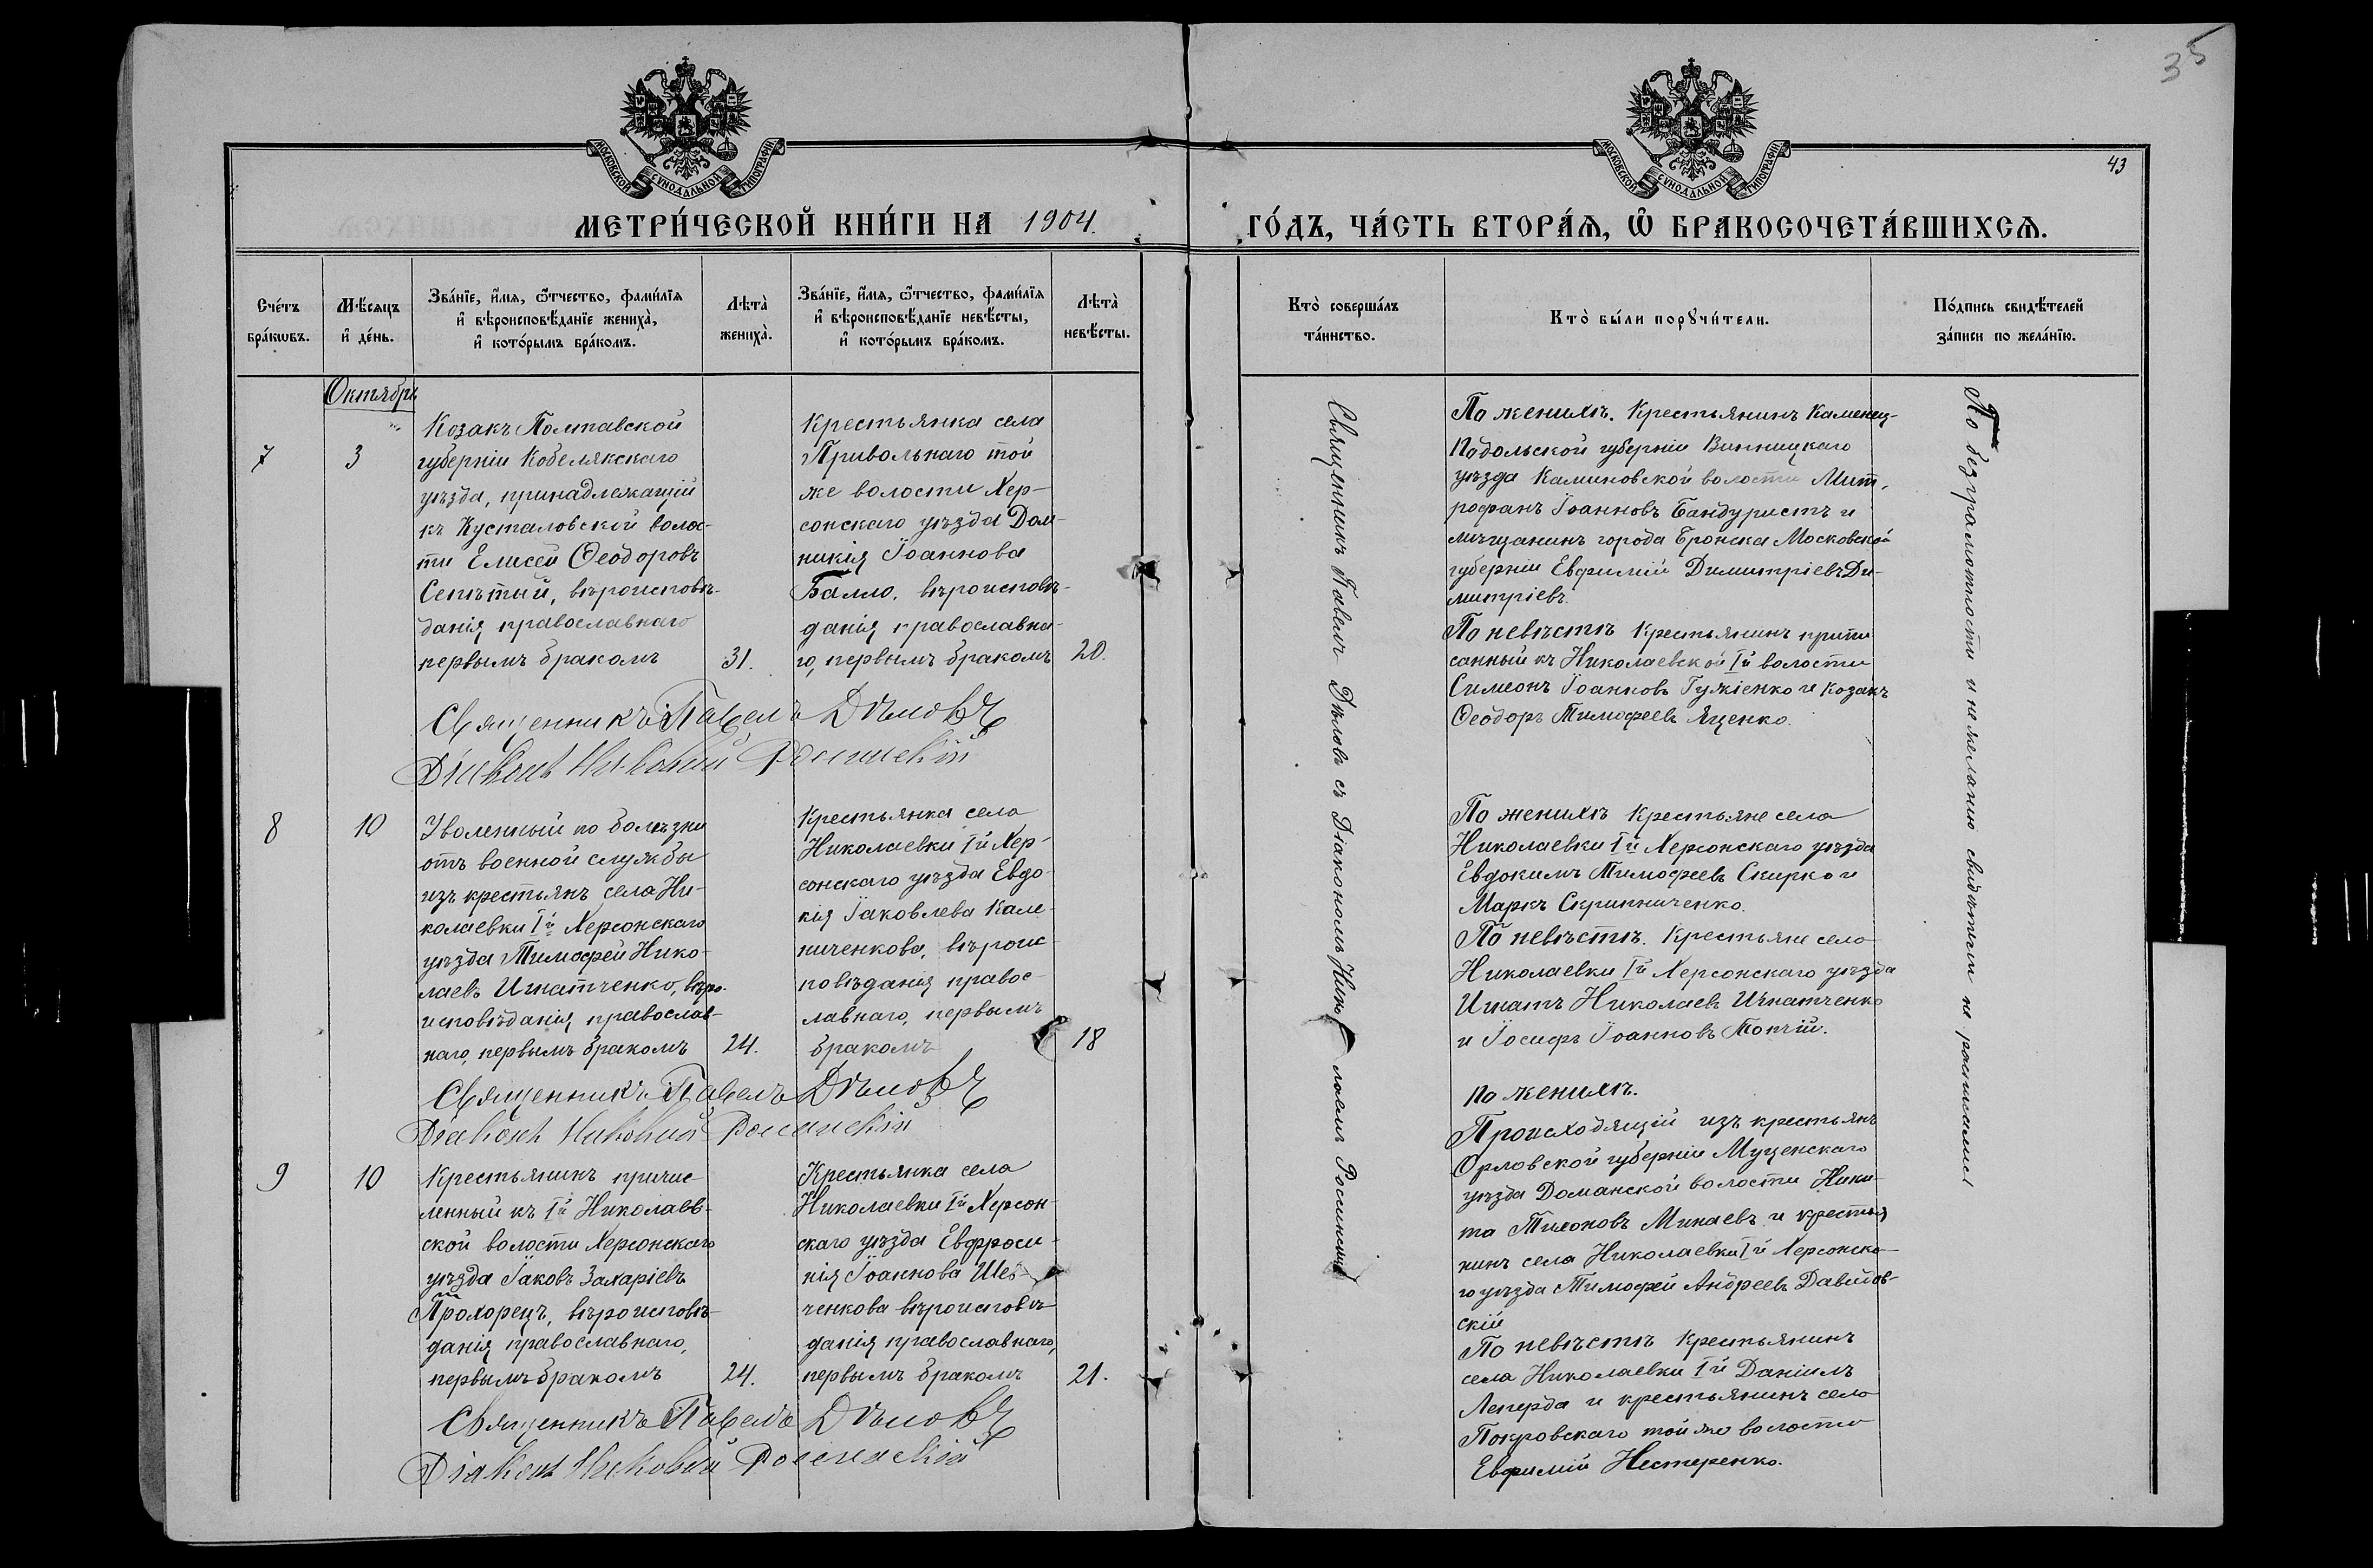 35
43
МОСКОВСКОЙ СѴНОДАЛЬНОЙ ТИПОГРАФІИ
МОСКОВСКОЙ СѴНОДАЛЬНОЙ ТИПОГРАФІИ
МЕТРИ́ЧЕСКОЙ КНИ́ГИ НА 1904. ГО́ДЪ, ЧА́СТЬ ВТОРА́Я, Ѽ БРАКОСОЧЕТА́ВШИХСЯ.
Сче́тъ
бра́кѡвъ.
Мѣ́сяцъ
и҆ де́нь.
Зва́нїе, и҆́мя, ѻ҆́тчество, фами́лїя
и҆ вѣроисповѣ́данїе жениха̀,
и҆ кото́рымъ бра́комъ.
Лѣта̀
жениха̀.
Зва́нїе, и҆́мя, ѻ҆́тчество, фами́лїя
и҆ вѣроисповѣ́данїе невѣ́сты,
и҆ кото́рымъ бра́комъ.
Лѣта̀
невѣ́сты.
Кто̀ соверша́лъ
та́инство.
Кто̀ бы́ли порꙋчи́тели.
По́дпись свидѣ́телей
за́писи по жела́нїю.
Октябрь
7
3
Козакъ Полтавской
губерніи Кобелякскаго
уѣзда, принадлежащій
къ Кусталовской волос-
ти Елисей Ѳеодоровъ
Сепѣтый, вѣроисповѣ-
данія православнаго
первымъ бракомъ
31.
Крестьянка села
Привольнаго той
же волости Хер-
сонскаго уѣзда Дом-
никія Іоаннова
Балло, вѣроисповѣ-
данія православна-
го, первымъ бракомъ
20.
Священникъ Павелъ Дѣловъ
Діаконъ Николай Россинскій
По женихѣ. Крестьянинъ Каменец-
Подольской губерніи Винницкаго
уѣзда Калиновской волости Мит-
рофанъ Іоанновъ Бандуристъ и
мѣщанинъ города Бронска Московской
губерніи Евфимій Димитріевъ Ди-
митріевъ.
По невѣстѣ Крестьянинъ припи
санный къ Николаевской Iй волости
Симеонъ Іоанновъ Гужіенко и козакъ
Ѳеодоръ Тимофеевъ Яценко.
8
10
Уволенный по болѣзни
отъ военной службы
изъ крестьянъ села Ни-
колаевки Iй Херсонскаго
уѣзда Тимофей Нико-
лаевъ Игнатченко, вѣро-
исповѣданія православ-
наго, первымъ бракомъ
24.
Крестьянка села
Николаевки Iй Хер-
сонскаго уѣзда Евдо-
кія Іаковлева Кале-
ниченкова, вѣроис-
повѣданія правос-
лавнаго, первымъ
бракомъ
18
Священникъ Павелъ Дѣловъ
Діаконъ Николай Россинскій
По женихѣ Крестьяне села
Николаевки Iй Херсонскаго уѣзда
Евдокимъ Тимофеевъ Скирко и
Маркъ Скрипниченко.
По невѣстѣ. Крестьяне село
Николаевки Iй Херсонскаго уѣзда
Игнатъ Николаевъ Игнатченко
и Іосифъ Іоанновъ Топчій.
9
10
Крестьянинъ причис
ленный къ Iй Николаев-
ской волости Херсонскаго
уѣзда Іаковъ Захаріевъ
Прохорецъ, вѣроисповѣ-
данія православнаго,
первымъ бракомъ
24.
Крестьянка села
Николаевки Iй Херсон-
скаго уѣзда Евфроси-
нія Іоаннова Шев-
ченкова вѣроисповѣ
данія православнаго,
первымъ бракомъ
21.
Священникъ Павелъ Дѣловъ
Діаконъ Николай Россинскій
По женихѣ.
Происходящій изъ крестьянъ
Орловской губерніи Муценскаго
уѣзда Доманской волости Ники-
та Тихоновъ Минаевъ и крестья
нинъ села Николаевки Iй Херсонска-
го уѣзда Тимофей Андреевъ Давидов-
скій
По невѣстѣ Крестьянинъ
села Николаевки Iй Даніилъ
Леперда и крестьянинъ село
Покровскаго той же волости
Евфимій Нестеренко.
Священникъ Павелъ Дѣловъ съ Діакономъ Николаемъ Россинскимъ
По безграмотности и не желанію свидѣтели не росписались